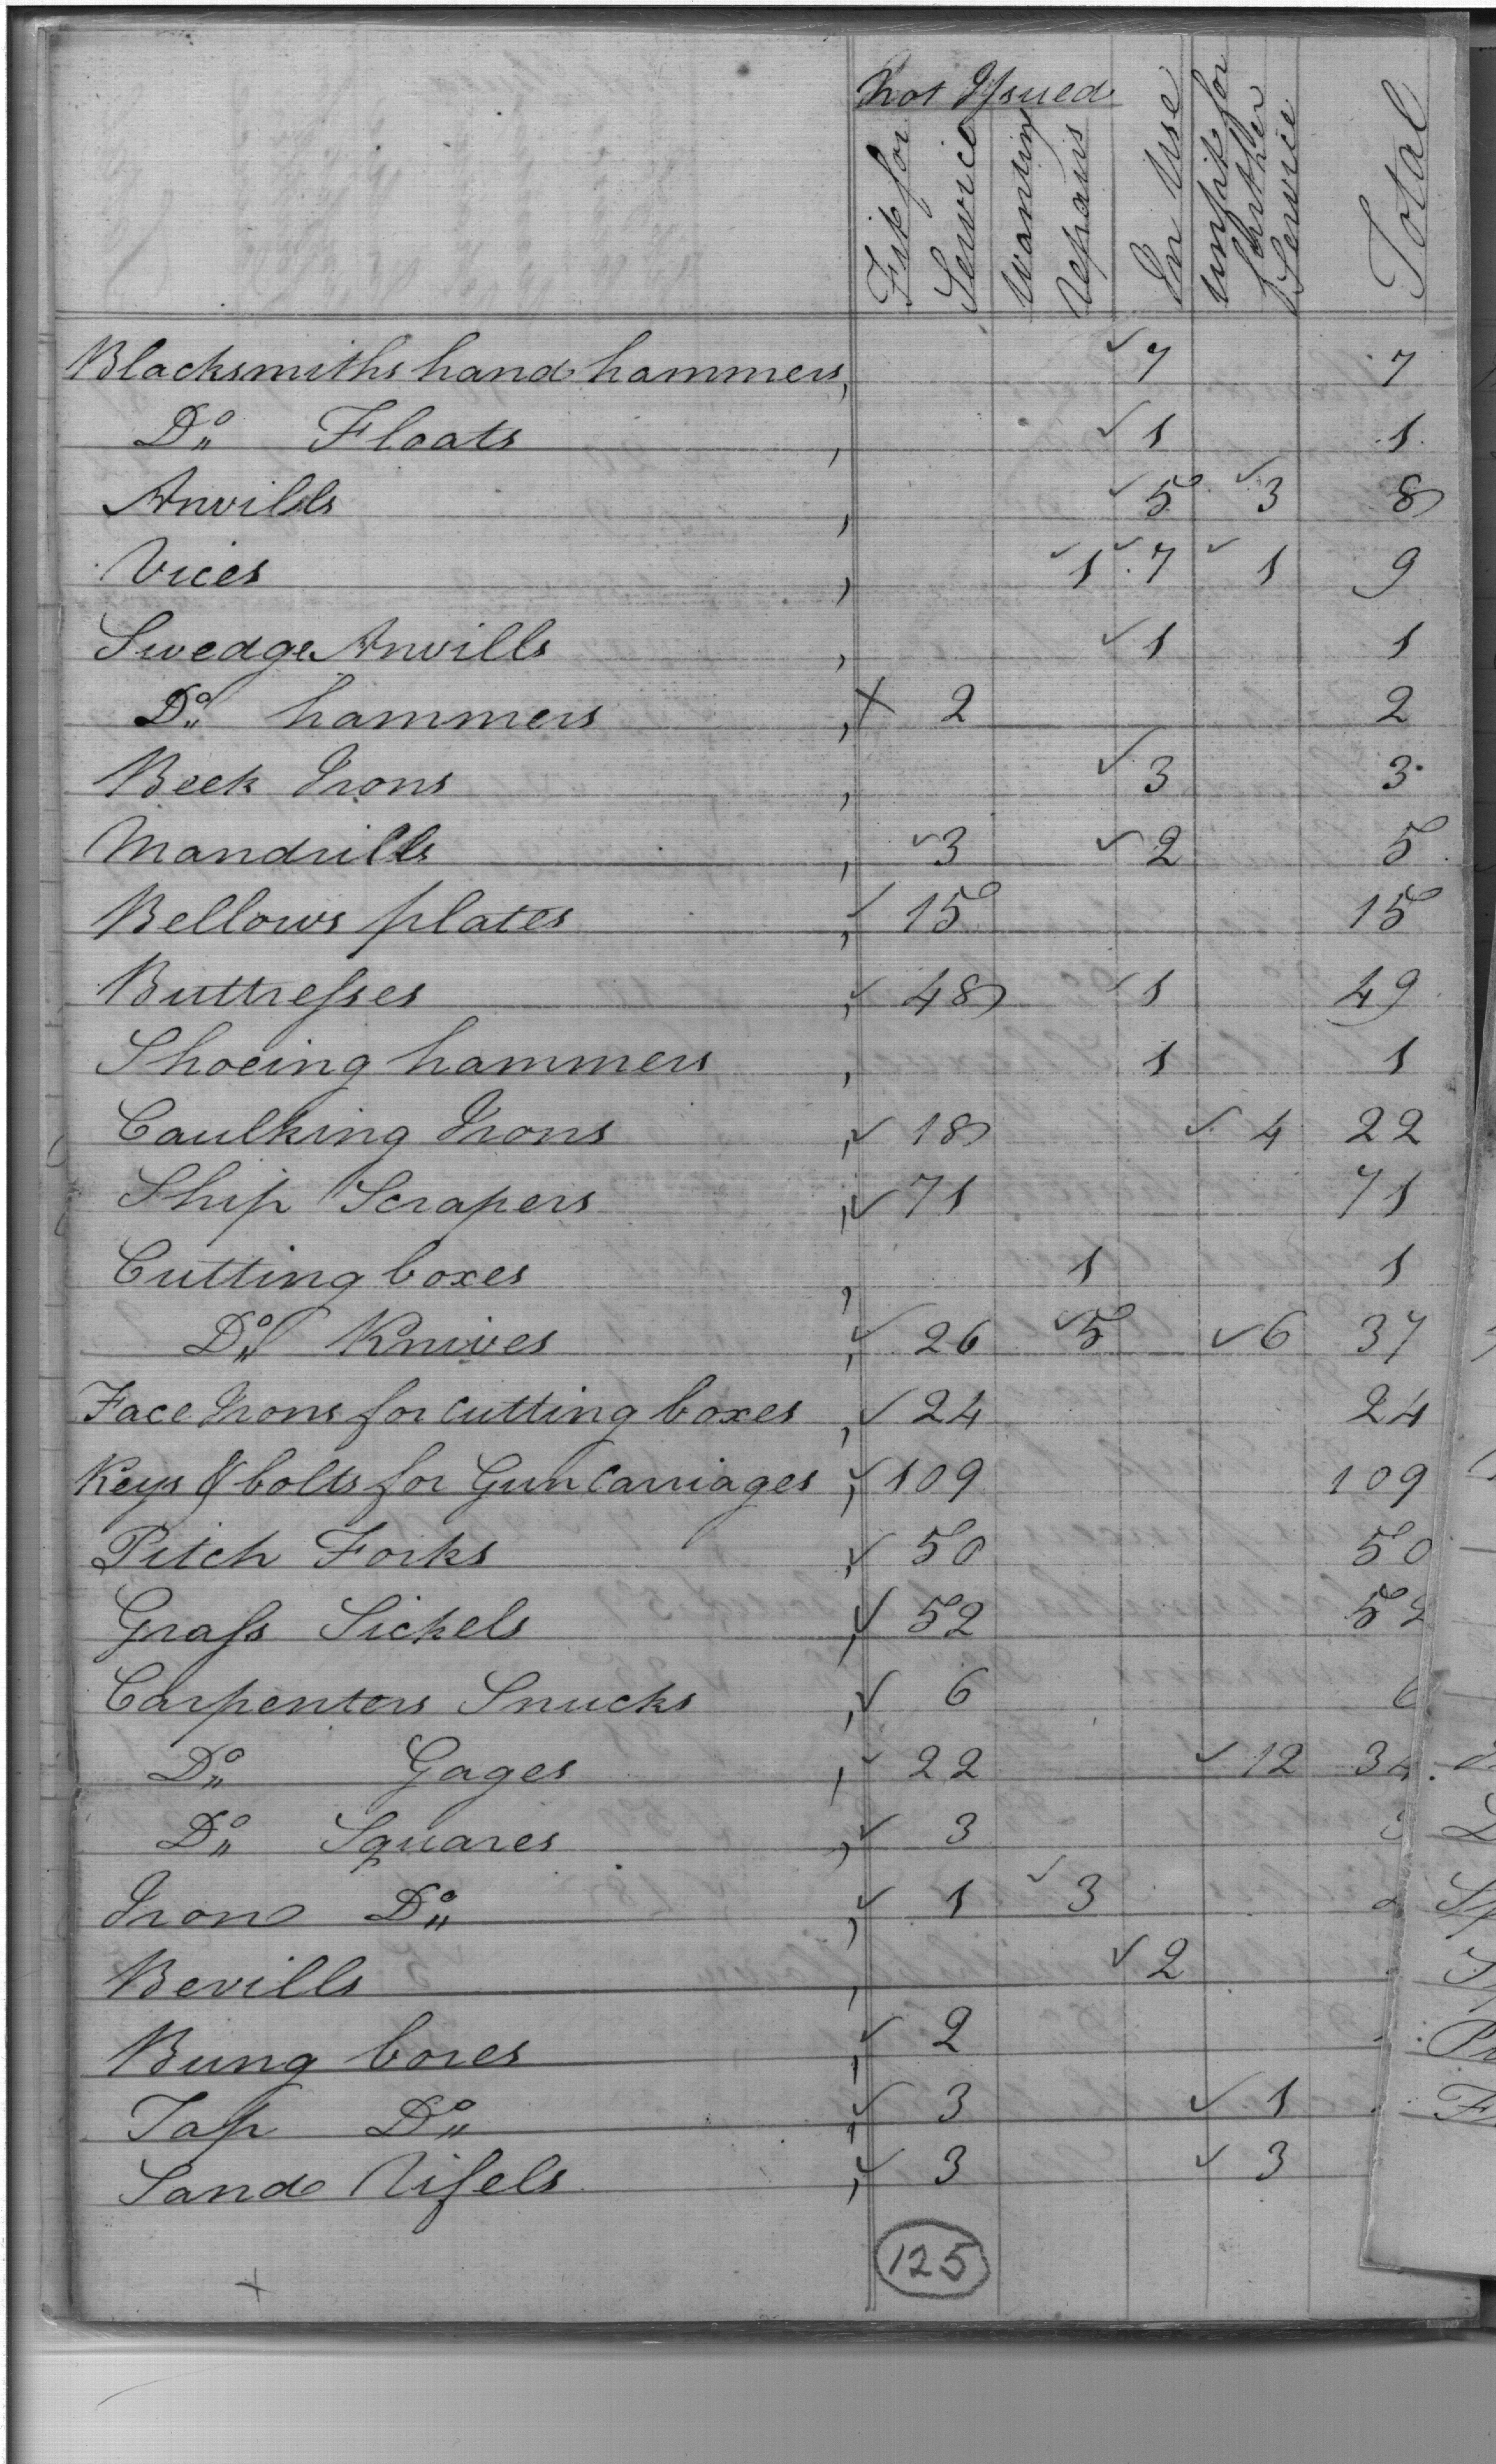 Not Issued
Fit for Service
Wanting repairs
In Use
Unfit for further Service
Total
Blacksmiths hand hammers, ✓ 7 7
Do Floats , ✓ 1 1
Anvills , ✓ 5 ✓ 3 8
Vices , ✓ 1 ✓ 7 ✓ 1 9
Swedge Anvills , ✓ 1 1
Do hammers , X 2 2
Beek Irons , ✓ 3 3
Mandrills , ✓ 3 ✓ 2 5
Bellows plates , ✓ 15 15
Buttresses , ✓ 48 ✓ 1 49
Shoeing hammers , 1 1
Caulking Irons , ✓ 18 ✓ 4 22
Ship Scrapers , ✓ 71 71
Cutting boxes , 1 1
Do Knives , ✓ 26 ✓ 5 ✓ 6 37
Face Irons for cutting boxes , ✓ 24 24
Keys & bolts for Gun Carriages , ✓ 109 109
Pitch Forks , ✓ 50 50
Grass Sickels , ✓ 52 52
Carpenters Snucks , ✓ 6 6
Do Gages , ✓ 22 ✓ 12 34
Do Squares , ✓ 3
Iron Do , ✓ 1 ✓ 3
Bevills , ✓ 2
Bung bores , ✓ 2
Tap Do , ✓ 3 ✓ 1
Sand Rifels , ✓ 3 ✓ 3
125
x